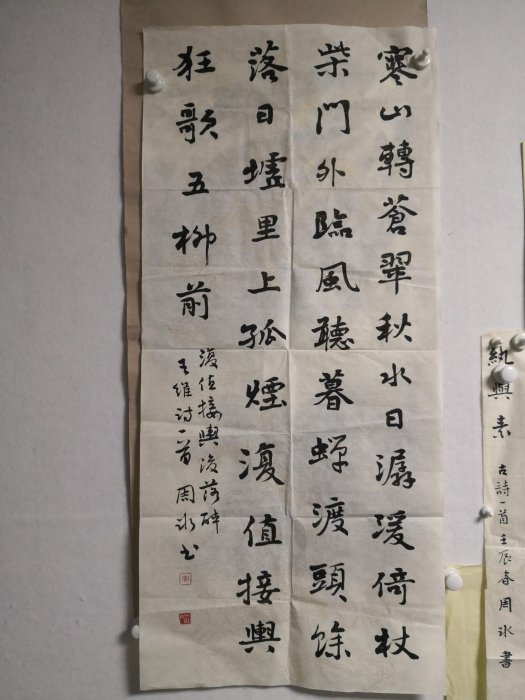 寒山轉蒼翠秋水日潺湲倚杖
柴門外臨風聽暮蟬渡頭餘
落日墟里上孤煙復值接輿
狂歌五柳前
復值接輿後落醉
王維詩一首 周冰书
紈與素
古詩一首壬辰春周冰書